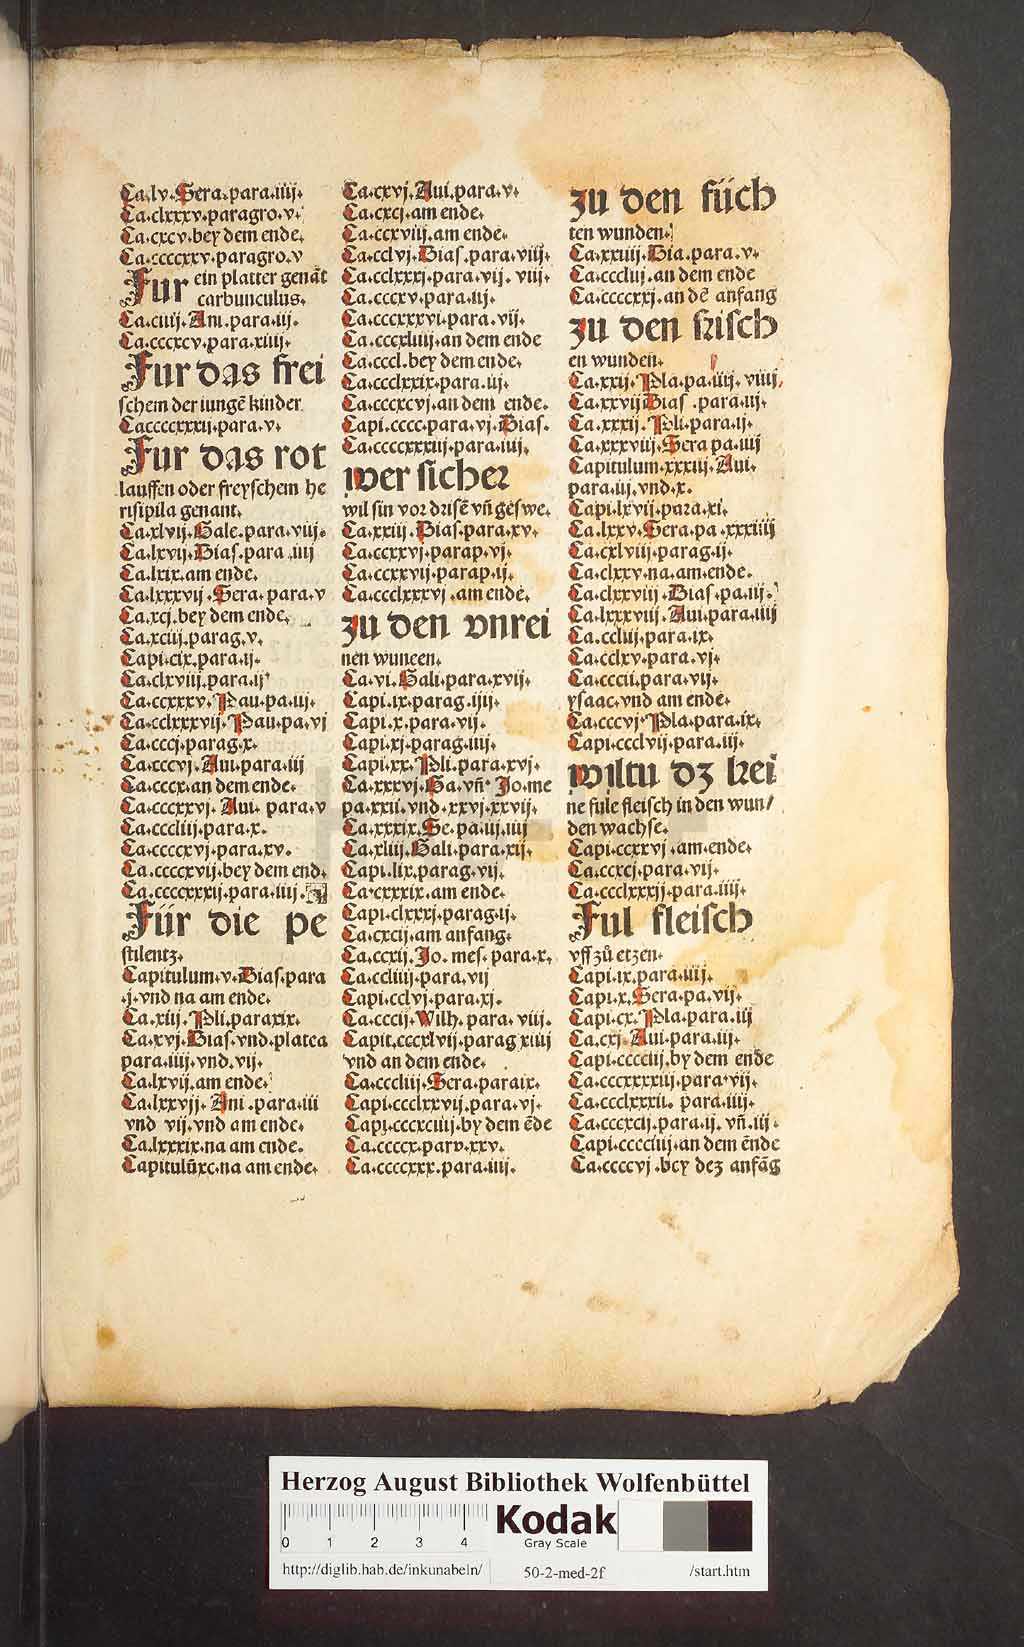 Ca.lv.Sera.para.iiij.
Ca.clxxxv.paragro.v.
Ca.cxcv.bey dem ende.
Ca.ccccxxv.paragro.v
Fur ein platter genāt
carbunculus.
Ca.ciiij.Ani.para.iij.
Ca.cccxcv.para.xiiij.
Fur das frei
schem der iungē kinder
Caccccxxxij.para.v.
Fur das rot
lauffen oder freyschem he
risipila genant.
Ca.xlvij.Gale.para.viij.
Ca.lxvij.Dias.para.iiij
Ca.lxix.am ende.
Ca.lxxxvij.Sera.para.v
Ca.xcj.bey dem ende.
Ca.xciij.parag.v.
Capi.cix.para.ij.
Ca.clxviij.para.ij
Ca.ccxxxv.Pau.pa.iij.
Ca.cclxxxvij.Pau.pa.vj
Ca.cccj.parag.x.
Ca.cccvj.Aui.para.iij
Ca.cccx.an dem ende.
Ca.cccxxvj.Aui.para.v
Ca.cccliij.para.x.
Ca.ccccxvj.para.xv.
Ca.ccccxvij.bey dem end.
Ca.ccccxxxij.para.iiij.
Für die pe
stilentz.
Capitulum.v.Dias.para
.j.vnd na am ende.
Ca.xiij.Pli.paraxix.
Ca.xvj.Dias.vnd.platea
para.iiij.vnd.vij.
Ca.lxvij.am ende.
Ca.lxxvij.Ani.para.iii
vnd vij.vnd am ende.
Ca.lxxxix.na am ende.
Capitulūxc.na am ende.
Ca.cxvj.Aui.para.v.
Ca.cxcj.am ende.
Ca.ccxviij.am ende.
Ca.cclvj.Dias.para.viij.
Ca.cclxxxj.para.vij.viij.
Ca.cccxv.para.iij.
Ca.cccxxxvi.para.vij.
Ca.cccxliiij.an dem ende
Ca.cccl.bey dem ende.
Ca.ccclxxix.para.iij.
Ca.cccxcvj.an dem ende.
Capi.cccc.para.vj.Dias.
Ca.ccccxxxiij.para.iiij.
wer sicher
wil sin vor drisē vñ geswe.
Ca.xxiij.Dias.para.xv.
Ca.ccxxvj.parap.vj.
Ca.ccxxvij.parap.ij.
Ca.ccclxxxvj.am ende.
zu den vnrei
nen wunden.
Ca.vi.Gali.para.xvij.
Capi.ix.parag.iiij.
Capi.x.para.vij.
Capi.xj.parag.iiij.
Capi.xx.Pli.para.xvj.
Ca.xxxvj.Ga.vñ Jo.me
pa.xxii.vnd.xxvj.xxvij.
Ca.xxxix.Se.pa.iij.iiij
Ca.xliij.Gali.para.xij.
Capi.lix.parag.vij.
Ca.cxxxix.am ende.
Capi.clxxxj.parag.ij.
Ca.cxcij.am anfang.
Ca.ccxij.Jo.mes.para.x.
Ca.ccliiij.para.vij
Capi.cclvj.para.xj.
Ca.cccij.Wilh.para.viij.
Capit.cccxlvij.parag xiiij
vnd an dem ende.
Ca.cccliij.Sera.paraix.
Capi.ccclxxvij.para.vj.
Capi.cccxciiij.by dem ēde
Ca.ccccx.parv.xxv.
Ca.ccccxxx.para.iiij.
zu den füch
ten wunden.
Ca.xxiiij.Dia.para.v.
Ca.cccliij.an dem ende
Ca.ccccxxj.an dē anfang
zu den frisch
en wunden.
Ca.xxij.Pla.pa.iiij.viiij.
Ca.xxvij Dias.para.iij.
Ca.xxxij.Pli.para.ij.
Ca.xxxviij.Sera pa.iiij
Capitulum.xxxiij.Aui.
para.iij.vnd.x.
Capi.lxvij.para.xi.
Ca.lxxv.Sera.pa.xxxiiij
Ca.cxlviij.parag.ij.
Ca.clxxv.na.am.ende.
Ca.clxxviij.Dias.pa.iij.
Ca.lxxxviij.Aui.para.iiij
Ca.ccliij.para.ix.
Ca.cclxv.para.vj.
Ca.cccii.para.vij.
ysaac.vnd am ende.
Ca.cccvj.Pla.para.ix.
Capi.ccclvij.para.iij.
wiltu dz kei
ne fule fleisch in den wun/
den wachse.
Capi.ccxxvj.am.ende.
Ca.ccxcj.para.vij.
Ca.ccclxxxij.para.iiij.
Ful fleisch
vff zů etzen.
Capi.ix.para.iiij.
Capi.x.Sera.pa.vij.
Capi.cx.Pla.para.iij
Ca.cxj.Aui.para.iij.
Capi.ccccij.by dem ende
Ca.cccxxxiij.para.vij.
Ca.ccclxxii.para.iiij.
Ca.cccxcij.para.ij.vñ.iij.
Capi.cccciiij.an dem ēnde
Ca.ccccvj.bey dez anfāg
Herzog August Bibliothek Wolfenbüttel
0 1 2 3 4
Kodak
Gray Scale
http://diglib.hab.de/inkunabeln/ 50-2-med-2f /start.htm